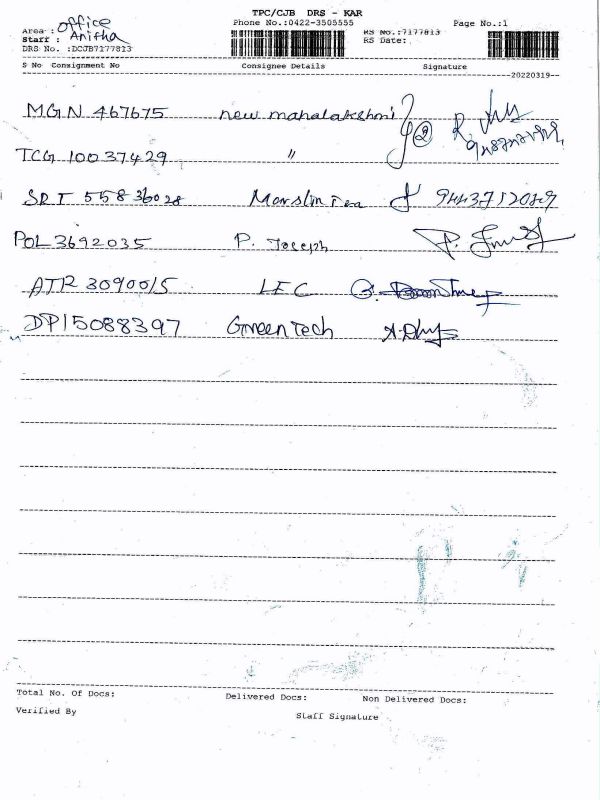 TPC/CJB DRS - KAR
Area : Office Phone No.:0422-3505555 RS No.:7177813 Page No.:1
Staff : Anitha RS Date:
DRS No. :DCJB7177813
S No Consignment No Consignee Details Signature
20220319
MGN 467675 new mahalakshmi 2
TCG 10037429 "
SRT 55836028
POL 3692035 P. Joseph
ATR 3090015 LEC
DP15088397 Green Tech
Total No. Of Docs: Delivered Docs: Non Delivered Docs:
Verified By Staff Signature